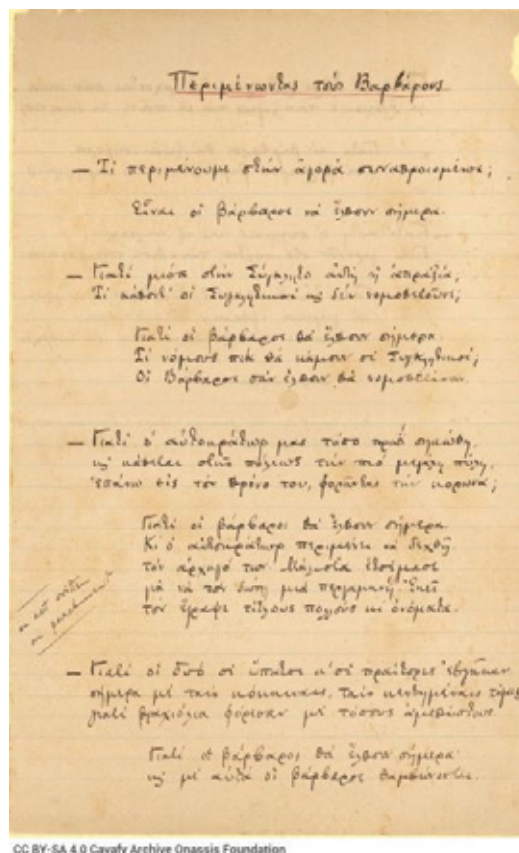 Περιμένοντας τους Βαρβάρους
— Τί περιμένουμε στην ἀγορά συναθροισμένοι;
Εἶναι οἱ βάρβαροι νά ἔλθουν σήμερα.
— Γιατί μέσα στην Σύγκλητο αὐτή ἡ ἀπραξία;
Τί κάθοντ' οἱ Συγκλητικοί και δέν νομοθετοῦνε;
Γιατί οἱ βάρβαροι θά ἔλθουν σήμερα.
Τί νόμους πιά θά κάμουν οἱ Συγκλητικοί;
Οἱ Βάρβαροι σάν ἔλθουν θά νομοθετήσουν.
— Γιατί ὁ αὐτοκράτωρ μας τόσο πρωΐ σηκώθη,
και κάθεται στῆς πόλεως την πιό μεγάλη πύλη,
ἐπάνω εἰς τόν θρόνο του, φορῶντας την κορώνα;
Γιατί οἱ βάρβαροι θά ἔλθουν σήμερα
Κι ὁ αὐτοκράτωρ περιμένει νά δεχθῇ
τόν ἀρχηγό των. Μάλιστα ἑτοίμασε
γιά νά τόν δώσῃ μιά περγαμηνή. Ἐκεῖ
τόν ἔγραψε τίτλους πολλούς κι ὀνόματα.
on parchment
— Γιατί οἱ δυό οἱ ὕπατοι κ' οἱ πραίτορες ἐβγῆκαν
σήμερα μέ ταίς κόκκιναις, ταίς κεντημέναις
γιατί βραχιόλια φόρεσαν μέ τόσους ἀμεθύστους
Γιατί οἱ βάρβαροι θά ἔλθουν σήμερα·
και μέ αὐτά οἱ βάρβαροι θαμβώνονται.
CC BY-SA 4.0 Cavafy Archive Onassis Foundation